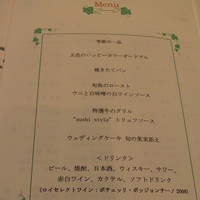 Menu
季節の一品
五色のハッピーカラーオードブル
焼きたてパン
旬魚のロースト
ウニと白味噌の白ワインソース
特選牛のグリル
"sushi style" トリュフソース
ウェディングケーキ 旬の果実添え
<ドリンク>
ビール、焼酎、日本酒、ウィスキー、サワー、
赤白ワイン、カクテル、ソフトドリンク
(ロイセレクトワイン:ポデュッリ・ポッジョンチーノ 2008)